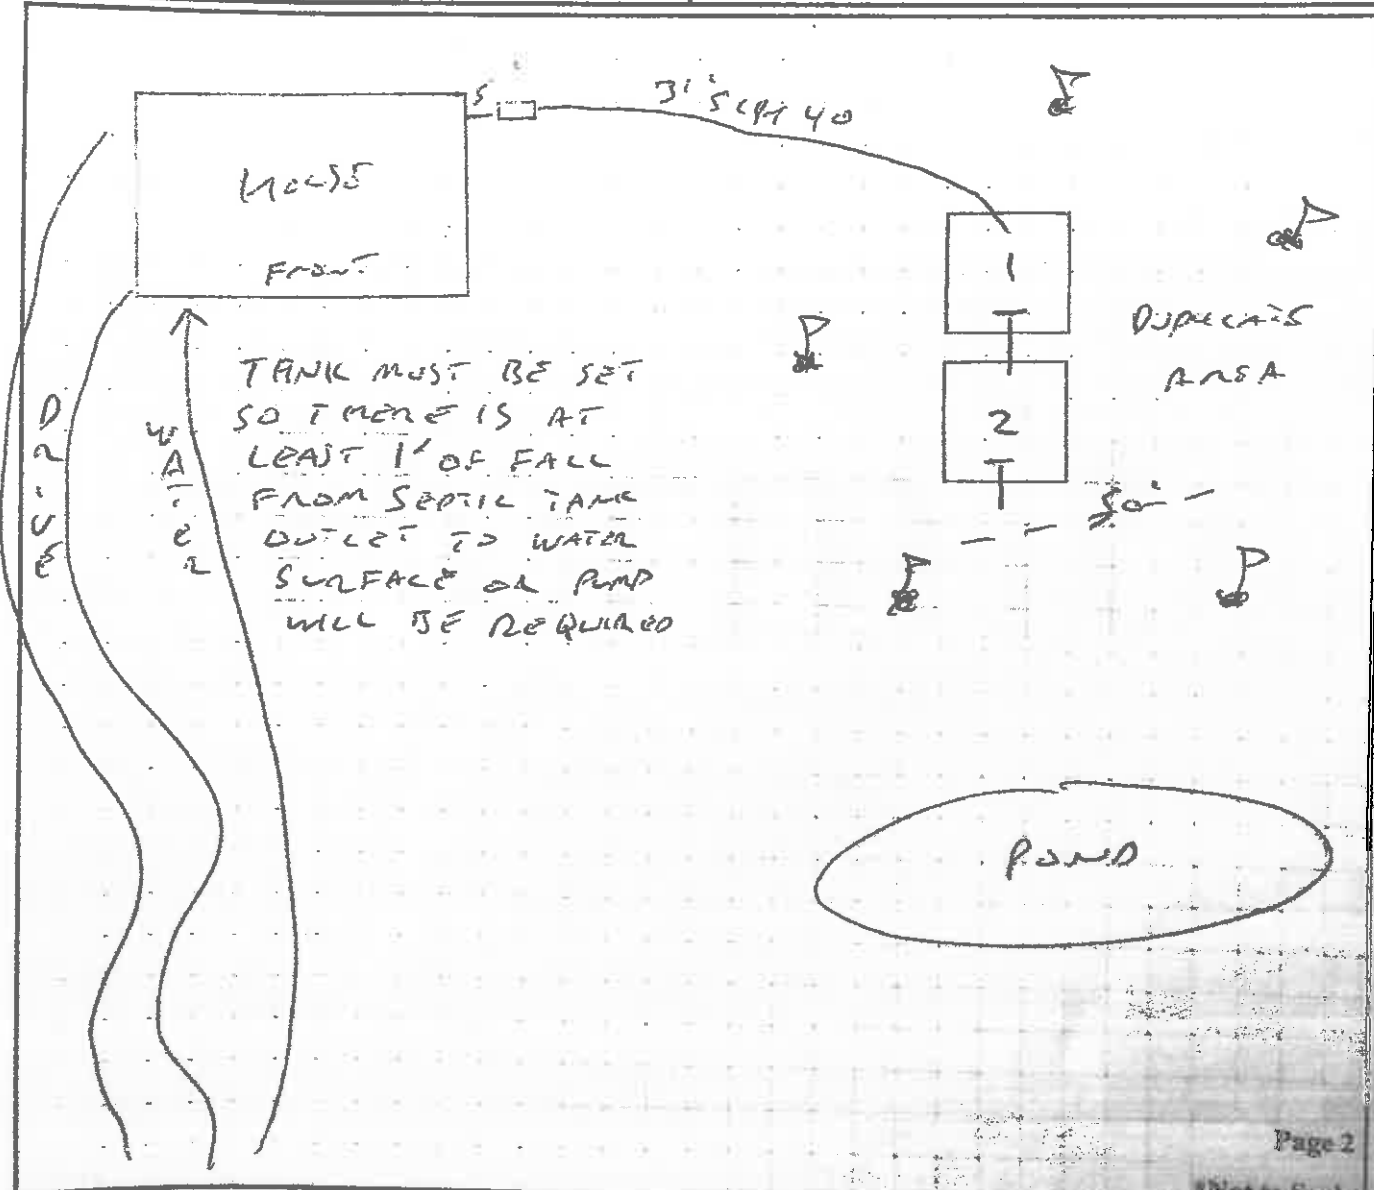 5'
3" SCH 40
HOUSE
FRONT
1
DUPLICATE
AREA
2
50'
DRIVE
WATER
TANK MUST BE SET
SO THERE IS AT
LEAST 1' OF FALL
FROM SEPTIC TANK
OUTLET TO WATER
SURFACE OR PUMP
WILL BE REQUIRED
POND
Page 2